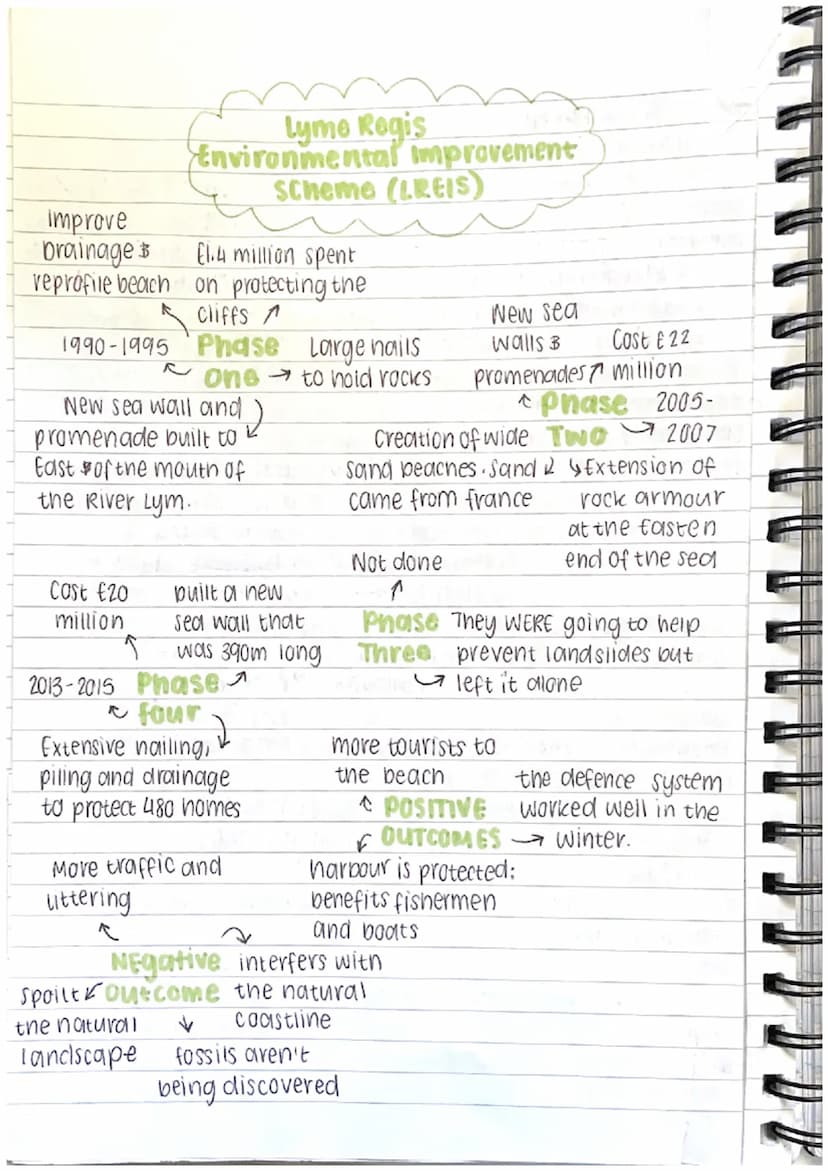 Lyme Regis
Environmental Improvement
Scheme (LREIS)
improve
drainage &
reprofile beach
£1.4 million spent
on protecting the
cliffs
1990-1995
Phase
One
Large nails
to hold rocks
New sea wall and
promenade built to
East of the mouth of
the River Lym.
New sea
walls &
promenades
Cost £22
million
Phase
Two
2005-
2007
Creation of wide
sand beaches. Sand
came from france
Extension of
rock armour
at the Easten
end of the sea
Not done
Phase
Three
They WERE going to help
prevent landslides but
left it alone
Cost £20
million
built a new
sea wall that
was 390m long
2013-2015
Phase
four
Extensive nailing,
piling and drainage
to protect 480 homes
more tourists to
the beach
POSITIVE
OUTCOMES
the defence system
worked well in the
winter.
harbour is protected:
benefits fishermen
and boats
More traffic and
littering
NEgative
Outcome
interfers with
the natural
coastline
spoilt
the natural
landscape
fossils aren't
being discovered